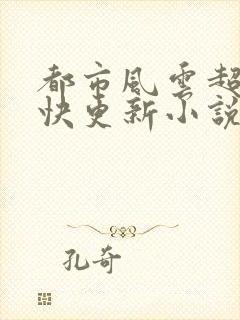 都市風雲超
快更新小說
孔奇